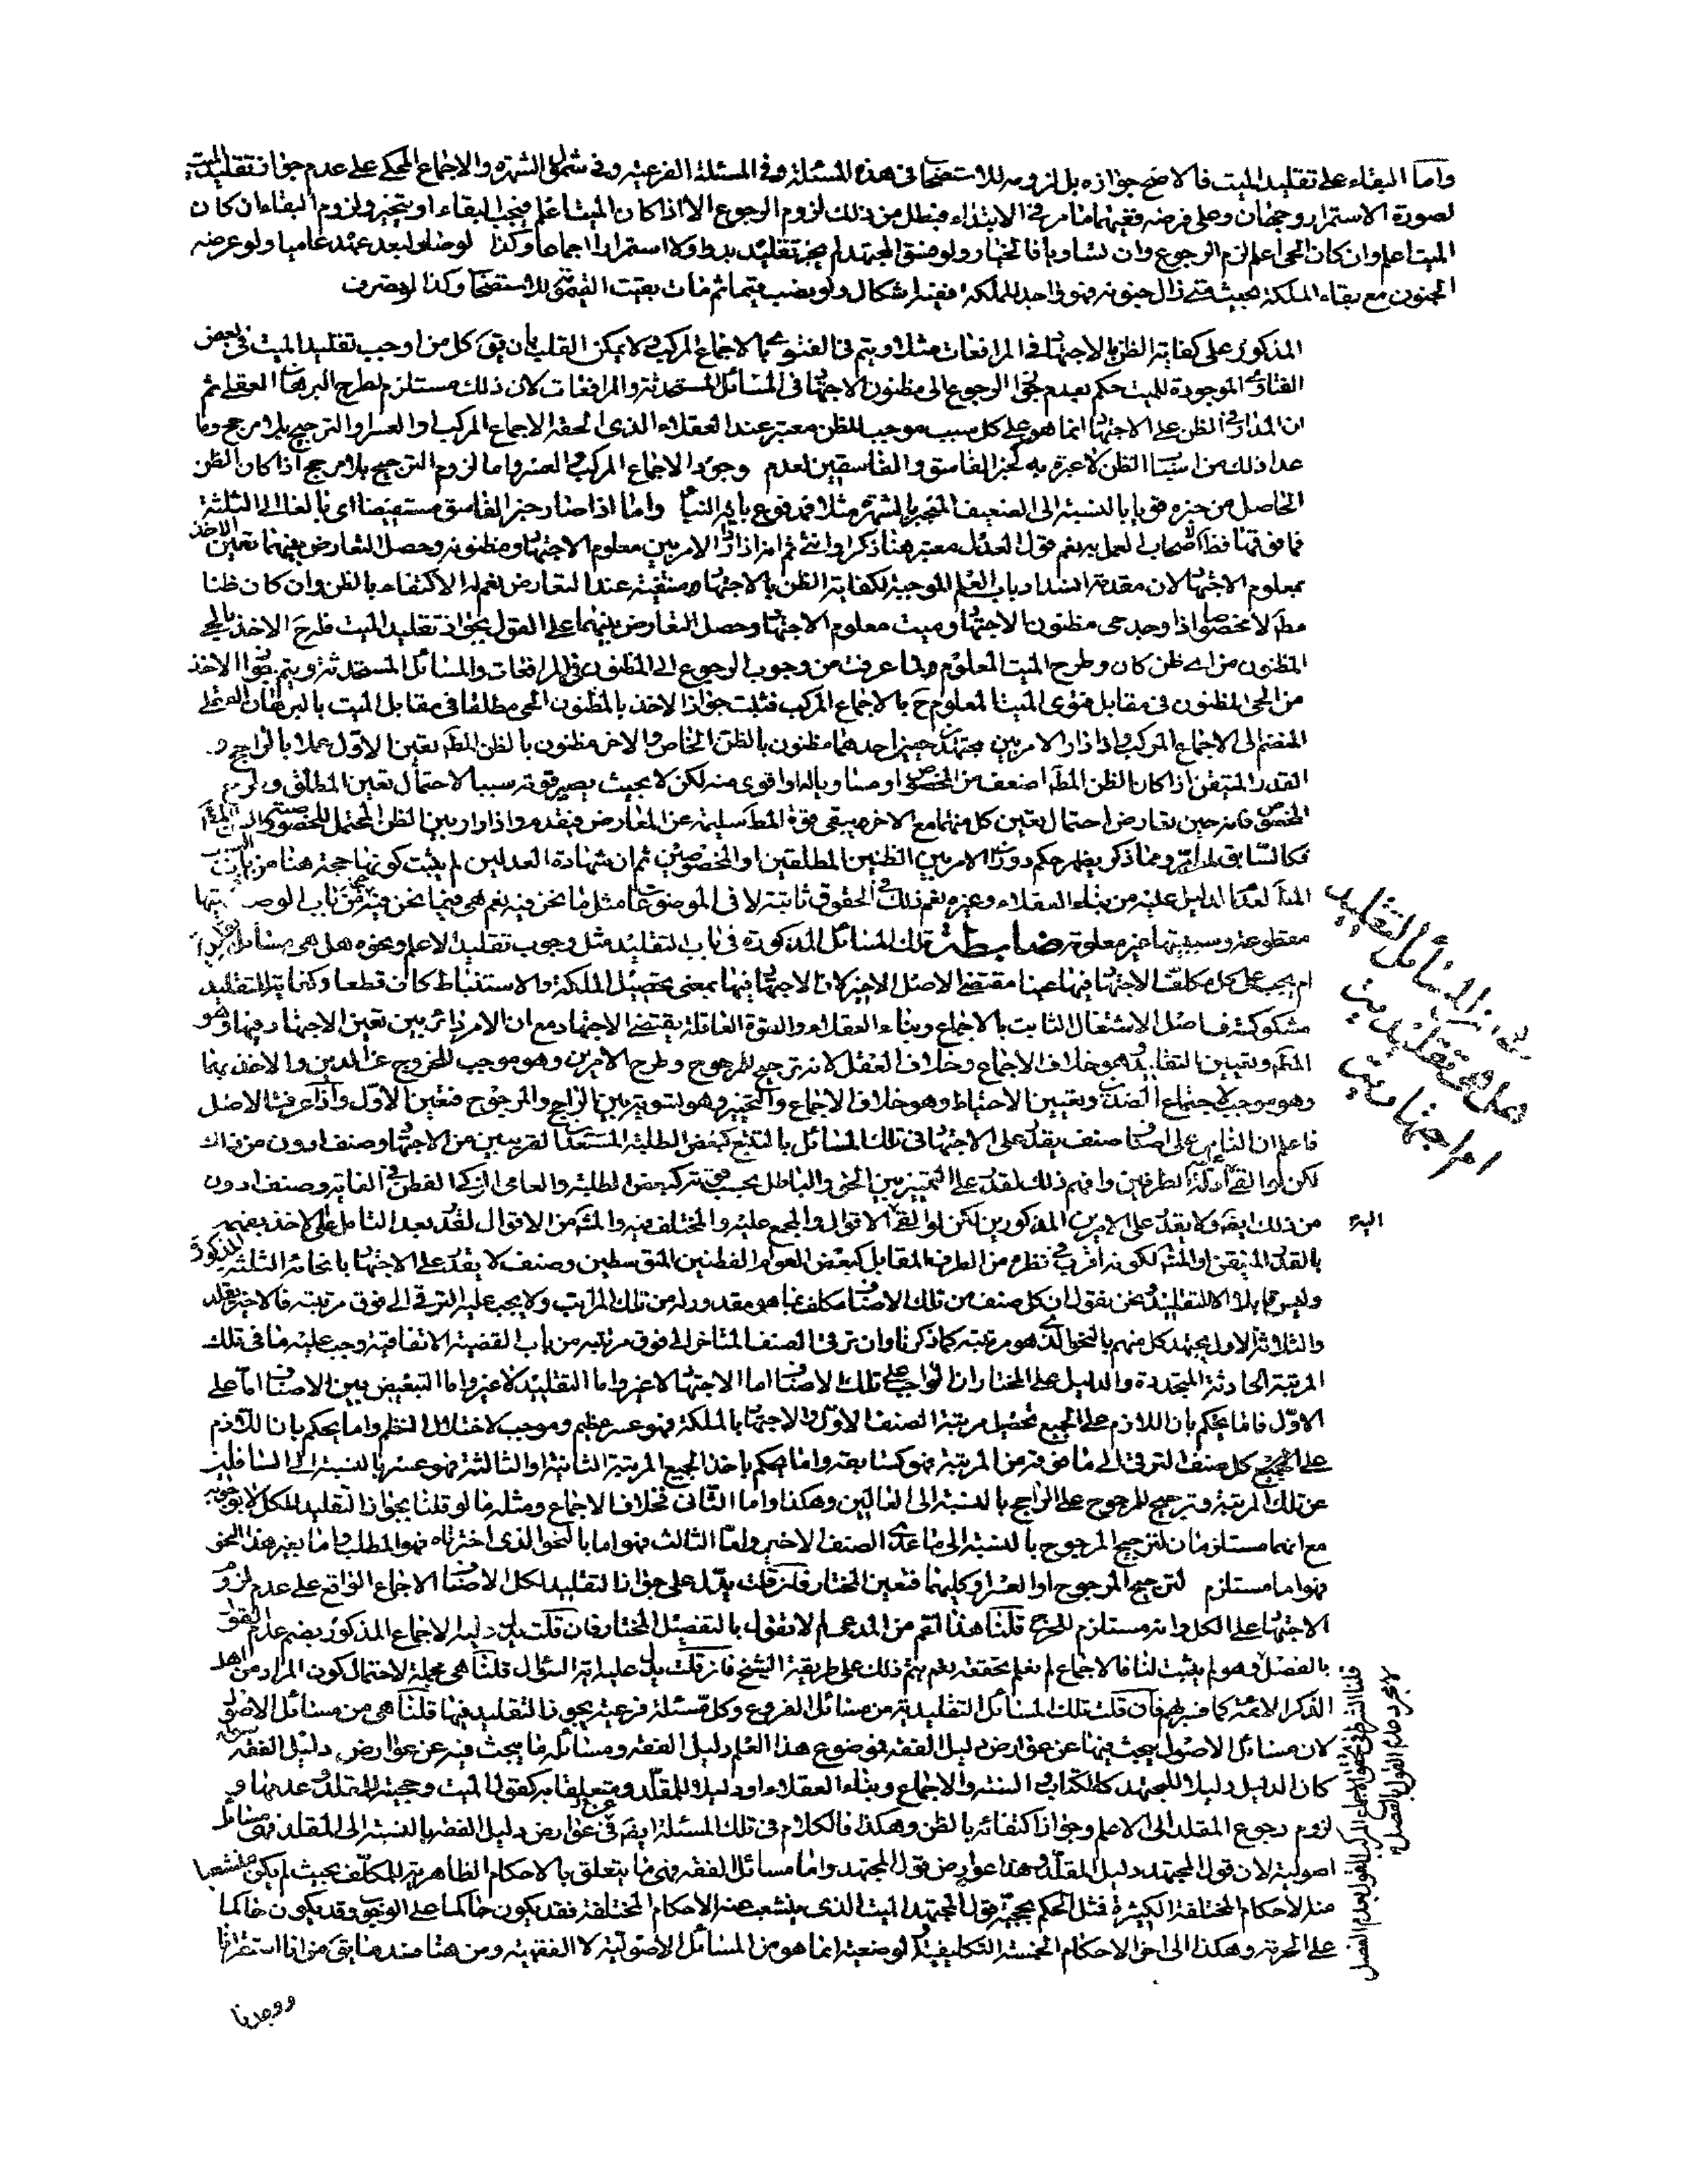 واما البقاء على تقليد الميت فالاصح جوازه بل لزومه للاستصحاب فى هذه المسئلة وفى المسئلة الفرعية وفى شمول الشهرة والاجماع المحكى على عدم جواز تقليد الميت
لصورة الاستمرار وجهان وعلى فرضه ففيهما ما مر فى الابتداء فبطل من ذلك لزوم الرجوع الا اذا كان الميت اعلم فيجب البقاء او يتخير ولزوم البقاء ان كان
الميت اعلم وان كان الحى اعلم لزم الرجوع وان تساويا فالخيار ولو فسق المجتهد لم يجز تقليده بدوا ولا استمرارا اجماعا وكذا لو صار بعد عامياً ولو عرضه
الجنون مع بقاء الملكة بحيث متى زال جنونه فهو واجد للملكة ففيه اشكال ولو نصب قيما ثم مات بقيت القيمومة للاستصحاب وكذا لو صرف
المذكور على كفاية الظن بالاجتهاد فى المرافعات مثلا ويتم فى الفتوى بالاجماع المركب ولا يمكن القلب بان كل من اوجب تقليد الميت فى بعض
الفتاوى الموجودة للميت حكم بعدم جواز الرجوع الى مظنون الاجتهاد فى المسائل المستحدثة والمرافعات لان ذلك مستلزم لطرح البرهان العقلى ثم
ان المدار فى الظن على الاجتهاد انما هو على كل سبب موجب للظن معتبر عند العقلاء الذى لحقه الاجماع المركب او العسر او الترجيح بلا مرجح وما
عدا ذلك من اسباب الظن لا عبرة به كخبر الفاسق والفاسقين لعدم وجود الاجماع المركب والعسر واما لزوم الترجيح بلا مرجح اذا كان الظن
الحاصل من خبره قويا بالنسبة الى الضعيف المنجبر بالشهرة مثلا فمدفوع باية النبأ واما اذا صار خبر الفاسق مستفيضا اى بالغا الى الثلثة
فما فوقها العمل به نعم قول العدل معتبر هنا ذكرا وانثى ثم انه اذا دار الامر بين معلوم الاجتهاد ومظنونه وحصل التعارض بينهما تعين الاخذ
بمعلوم الاجتهاد لان مقدمة انسداد باب العلم الموجبة لكفاية الظن بالاجتهاد منتفية عند التعارض نعم له الاكتفاء بالظن وان كان ظنا
مط لا مخصوصا اذا وجد حى مظنون الاجتهاد وميت معلوم الاجتهاد وحصل التعارض بينهما على القول بجواز تقليد الميت فله ح الاخذ بالحى
المظنون من اى ظن كان وطرح الميت المعلوم ولما عرفت من وجوب الرجوع الى المظنون فى المرافعات والمسائل المستحدثة ويتم جواز الاخذ
من الحى المظنون فى مقابل فتوى الميت المعلوم ح بالاجماع المركب فثبت جواز الاخذ بالمظنون الحى مطلقا فى مقابل الميت بالبرهان العقلى
المنضم الى الاجماع المركب واذا دار الامر بين مجتهدين حيين احدهما مظنون بالظن الخاص والاخر مظنون بالظن المط تعين الاول عملا بالراجح و
القدر المتيقن اذا كان الظن المط اضعف من المخصوص او مساويا له او اقوى منه لكن لا بحيث يصير قوته سببا لاحتمال تعين المطلق
المخصوص فانه حين تعارض احتمال تعين كل منهما مع الاخر يبقى قوة المط سليمة عن المعارض فيقدم واذا دار بين الظن المحتمل للخصوصية
فكالسابق ومما ذكر يظهر حكم دوران الامر بين الظنين المطلقين او المخصوصين ثم ان شهادة العدلين لم يثبت كونها حجة هنا من باب السبب
المط لعدم الدليل عليه من بناء العقلاء وغيره نعم ذلك فى الحقوق ثابتة لا فى الموضوعات مثل ما نحن فيه نعم هى فيما نحن فيه من باب الوصف
مقطوعة وسببيتها غير معلومة ضابطة تلك المسائل المذكورة فى باب التقليد مثل وجوب تقليد الاعلم ونحوه هل هى مسائل تقليدية
ام يجب على كل مكلف الاجتهاد فيها عينا مقتضى الاصل الاخير لان الاجتهاد فيها بمعنى تحصيل الملكة والاستنباط كان قطعا وكفاية التقليد
مشكوكة فاصل الاشتغال الثابت بالاجماع وبناء العقلاء والقوة العاقلة يقتضى الاجتهاد مع ان الامر دائر بين تعين الاجتهاد فيها وهو
المط وتعيين التقليد وهو خلاف الاجماع وخلاف العقل لانه ترجيح للمرجوح وطرح الامرين وهو موجب للخروج عن الدين والاخذ بهما
وهو موجب لاجتماع الضدين وتعيين الاحتياط وهو خلاف الاجماع والتخيير وهو تسوية بين الراجح والمرجوح فتعين الاول واذا عرفت الاصل
فاعلم ان الناس على اصناف صنف يقدر على الاجتهاد فى تلك المسائل بالتتبع كبعض الطلبة المستعدين القريبين من الاجتهاد وصنف ادون من ذلك
لكن لو القى ادلة الطرفين وافهم ذلك لقدر على التمييز بين الحق والباطل بحسب قوته كبعض الطلبة والعامى الزكى الفطن فى الغاية وصنف ادون
من ذلك ايض ولا يقدر على الامرين المذكورين لكن لو القى الاقوال والمجمع عليه والمختلف فيه والمش من الاقوال لقدر بعد التامل على الاخذ
بالقدر المتيقن او المش لكونه اقرب فى نظره من الطرف المقابل كبعض العوام الفطنين المتوسطين وصنف لا يقدر على الاجتهاد بانحائه الثلثة المذكورة
وليس قابلا الا للتقليد ونحن نقول ان كل صنف من تلك الاصناف مكلف بما هو مقدور له من تلك المراتب ولا يجب عليه الترقى الى فوق مرتبته فالاخير يقلد
والثلاثة الاول يجتهد كل منهم بالنحو الذى هو مرتبته كما ذكرنا وان ترقى الصنف المتاخر الى فوق مرتبته من باب القضية الاتفاقية وجب عليه ما فى تلك
المرتبة الحادثة المتجددة والدليل على المختار ان الواجب على تلك الاصناف اما الاجتهاد لا غير واما التقليد لا غير واما التبعيض بين الاصناف اما على
الاول فاما يحكم بان اللازم على الجميع تحصيل مرتبة الصنف الاول والاجتهاد بالملكة فهو عسر عظيم وموجب لاختلال النظم واما يحكم بان اللازم
على الجميع كل صنف الترقى الى ما فوقه من المرتبة فهو كسابقه واما يحكم باخذ الجميع المرتبة الثانية او الثالثة فهو عسر بالنسبة الى السافلين
عن تلك المرتبة وترجيح للمرجوح على الراجح بالنسبة الى العالين وهكذا واما الثانى فخلاف الاجماع ومثله ما لو قلنا بجواز التقليد للكل لا بوجوبه
مع انهما مستلزمان لترجيح المرجوح بالنسبة الى ما عدى الصنف الاخير واما الثالث فهو اما بالنحو الذى اخترناه فهو المطلب واما بغير هذا النحو
فهو اما مستلزم لترجيح المرجوح او العسر او كليهما فتعين المختار فان قلت يدل على جواز التقليد لكل الاصناف الاجماع الواقع على عدم لزوم
الاجتهاد على الكل وانه مستلزم للحرج قلنا هذا اعم من المدعى لانا نقول بالتفصيل المختار فان قلت يدل عليه الاجماع المذكور بضم عدم القول
بالفصل وهو لم يثبت لنا فالاجماع لم نعلم تحققه نعم يتم ذلك على طريقة الشيخ فان قلت يدل عليه اية السؤال قلنا هى مجملة لاحتمال كون المراد من اهل
الذكر الائمة كما فسر بهم فان قلت تلك المسائل التقليدية من مسائل الفروع وكل مسئلة فرعية يجوز التقليد فيها قلنا هى من مسائل الاصول
لان مسائل الاصول يبحث فيها عن عوارض دليل الفقه فموضوع هذا العلم دليل الفقه ومسائله ما يبحث فيه عن عوارض دليل الفقه سواء
كان الدليل دليلا للمجتهد كالكتاب والسنة والاجماع وبناء العقلاء او دليلا للمقلد ومتعلقا به كقول الميت وحجيته للمقلد وعدمها و
لزوم رجوع المقلد الى الاعلم وجواز اكتفائه بالظن وهكذا فالكلام فى تلك المسئلة ايض فى عوارض دليل الفقه بالنسبة الى المقلد فهى مسائل
اصولية لان قول المجتهد دليل المقلد وهذا عوارض قول المجتهد واما مسائل الفقه فهى ما يتعلق بالاحكام الظاهرية للمكلف بحيث لم يكن منشعبا
منه الاحكام المختلفة الكثيرة فمثل الحكم بحجية قول المجتهد الميت الذى ينشعب عنه الاحكام المختلفة فقد يكون حاكما على الوجوب وقد يكون حاكما
على الحرمة وهكذا الى اخر الاحكام الخمسة التكليفية والوضعية انما هو من المسائل الاصولية لا الفقهية ومن هنا استقرانا
ووجدنا
المسائل التقليد
هل هى تقليديت
ام اجتهاديت
قلنا الشرط فى تحقق الاجماع المركب القول بعدم الفصل
لا مجرد عدم القول بالفصل